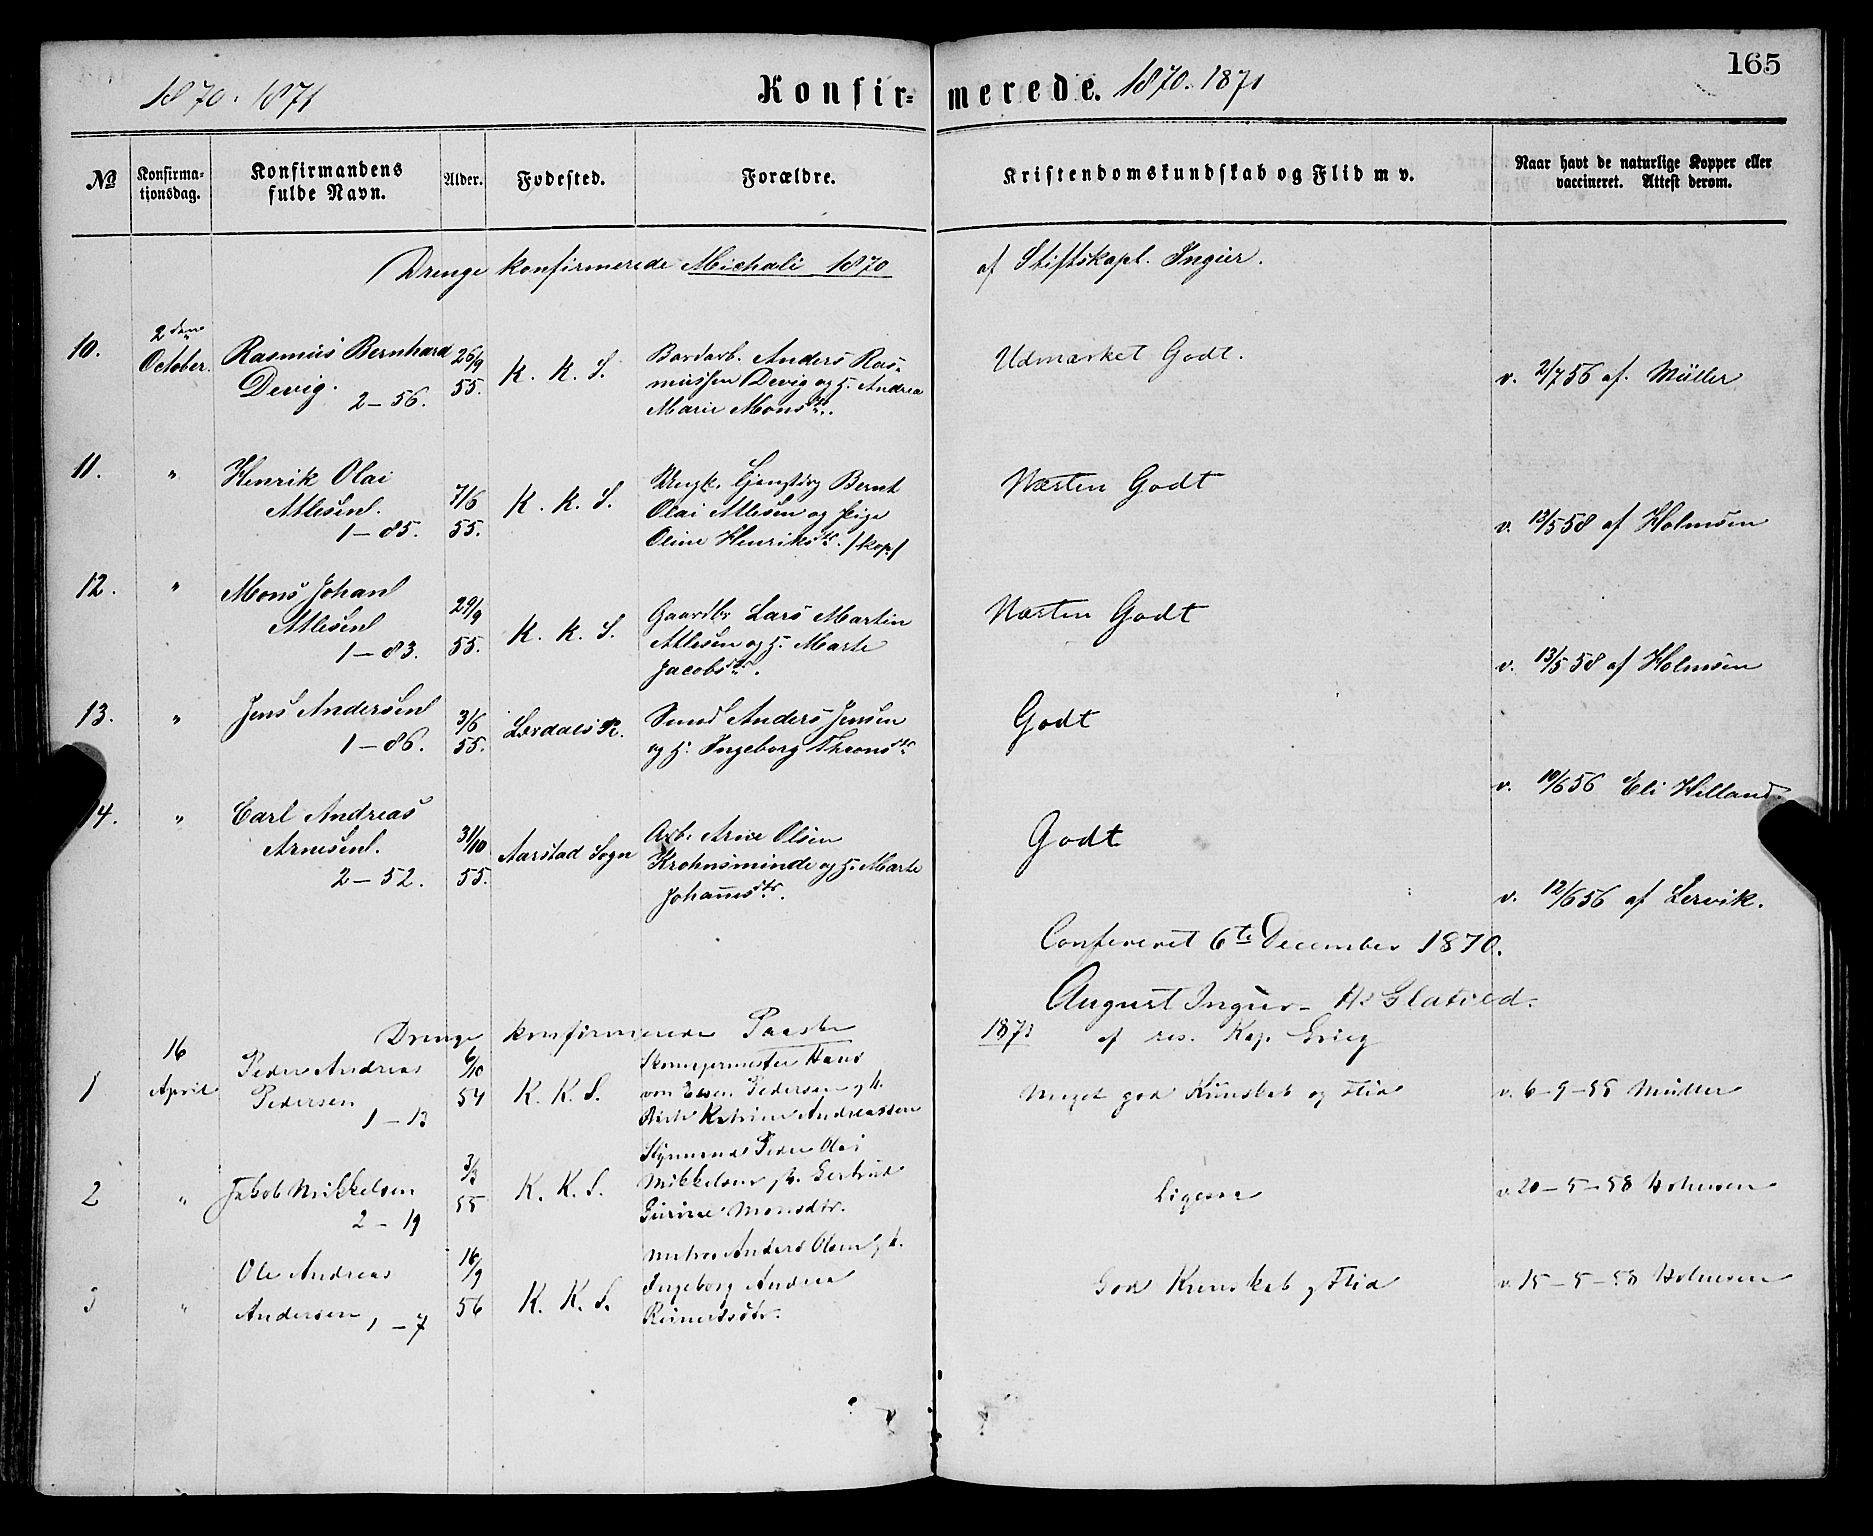 165
1870. 1871
Konfir= merede. 1870. 1871
No
Konfirma-
tionsdag.
Konfirmandens
fulde Navn.
Alder.
Fodested.
Forældre.
Kristendomskundskab og Flid m v.
Naar havt de naturlige Kopper eller
vaccineret. Attest derom.
Drenge konfirmerede Michali 1870 af Stiftskapl. Ingier.
10.
2den
October.
Rasmus Bernhard
Devig.
2 - 56.
26/9
55.
K. K. S.
Bordarb. Anders Ras-
mussen Devig og H. Andrea
Marie Monsdtr.
Udmærket Godt.
v. 2/7 56 af. Müller
11.
"
Henrik Olai
Atlesen.
1 - 85.
7/6
55.
K. K. S.
Ungk. Bernt
Olai Atlesen og Pige
Oline Henriksdtr. /kop/
Næsten Godt
v. 13/5 58 af Holmsen
12.
"
Mons Johan
Atlesen
1 - 83.
29/9
55.
K. K. S.
Gaardbr Lars Martin
Atlesen og H. Marte
Jacobsdtr.
Næsten Godt
v. 13/5 58 af Holmsen
13.
"
Jens Andersen
1 - 86.
3/6
55.
Lærdals K.
Smed Anders Jensen
og H. Ingeborg Thronsdtr
Godt
v. 10/6 56 Eli Helland
14.
"
Carl Andreas
Arnesen.
2 - 52.
31/10
55.
Aarstad Sogn
Arb. Arne Olsen
Krohnsminde og H. Marte
Johannesdtr.
Godt
v. 12/6 56 af Lervik.
Confereret 6te December 1870.
August Ingier - H. Glatved.
Drenge konfirmerede Paaske 1871 af res. Kap. Grieg
1
16
April
Peder Andreas
Pedersen
1 - 13
6/10
54
K. K. S.
Skomagermester Hans
von Essen Pedersen og H.
Katrine Andreassen
Meget god Kunskab og Flid
v. 6-9-55 Müller
2
"
Jakob Mikkelsen
2 - 19
3/3
55
K. K. S.
Styrmand Peder Olai
Mikkelsen og H. Gertrud
Gurine Monsdtr.
Ligesaa
v. 20-5-58 Holmsen
3
"
Ole Andreas
Andersen, 1 - 7
16/9
56
K. K. S.
Matros Anders Olsen og H.
Ingeborg Andrea
Reinertsdtr.
God Kunskab og Flid
v. 15-5-58 Holmsen